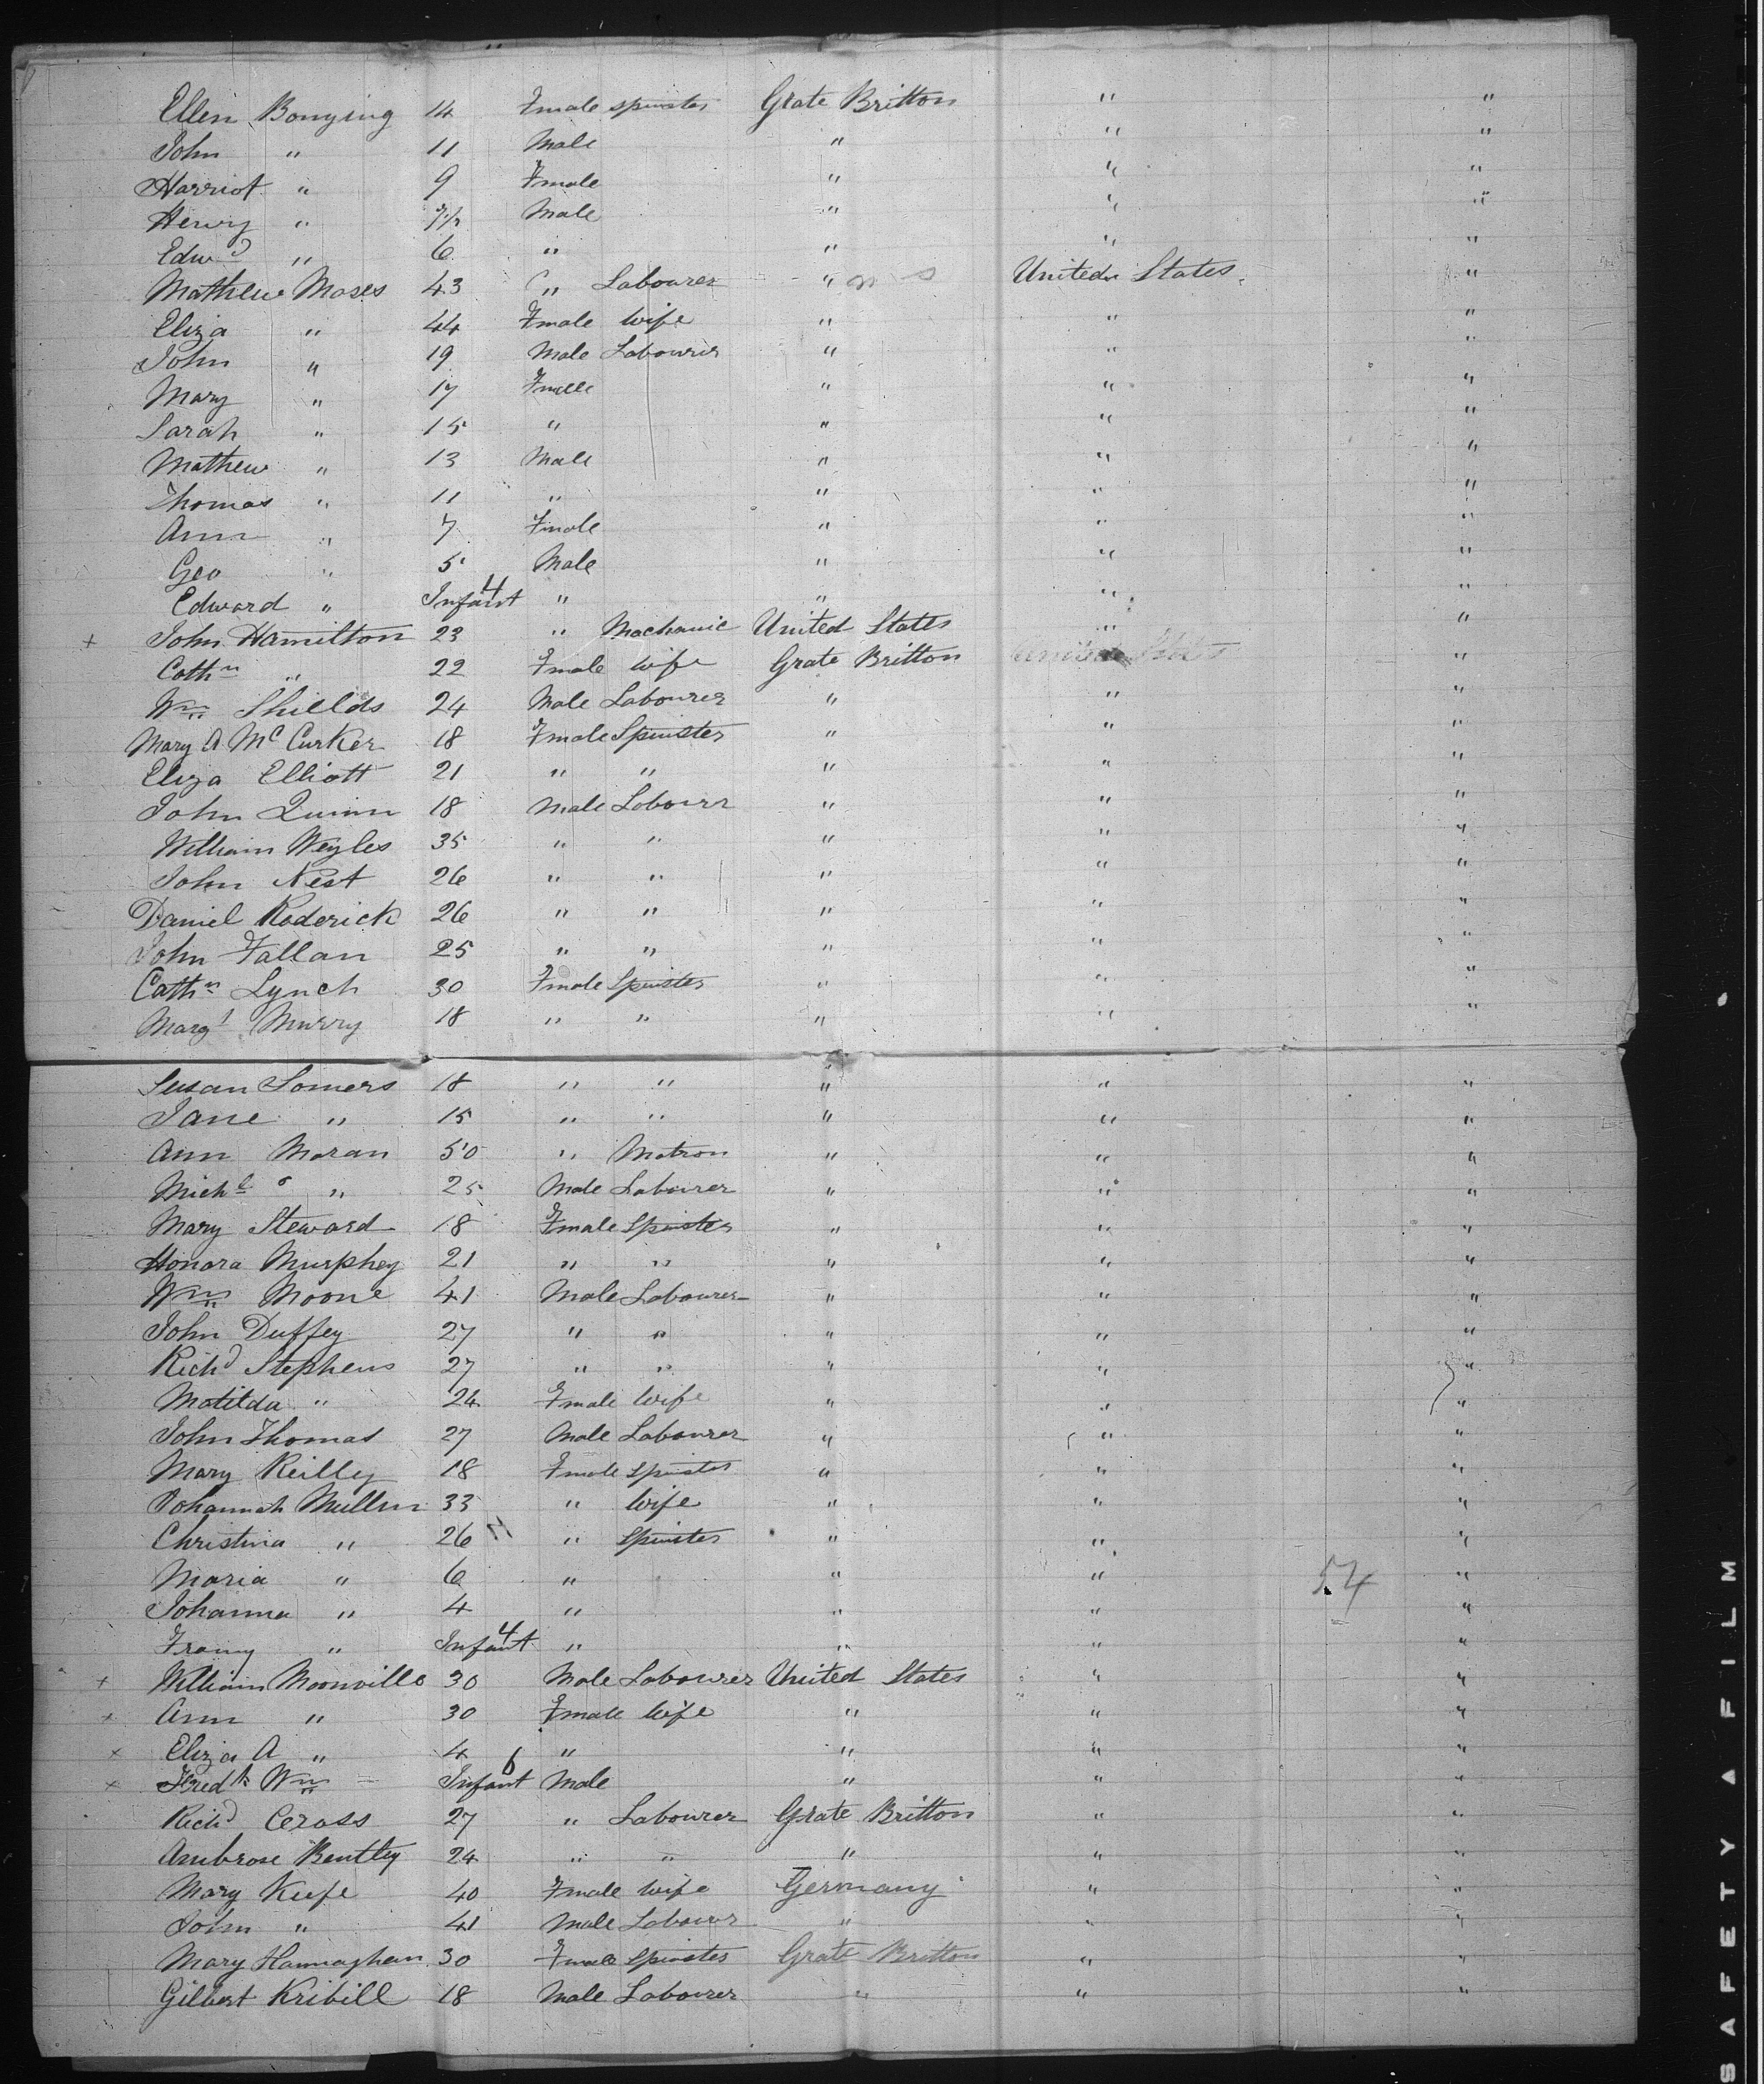 Ellen Bonying 14 Fmale spinster Grate Britton " "
John " 11 Male " " "
Harriot " 9 Fmale " " "
Henry " Male " " "
Edwd " 6 " " " "
Mathew Moses 43 " Labourer " United States "
Eliza " 44 Fmale wife " " "
John " 19 Male Labourer " " "
Mary " 17 Fmale " " "
Sarah " 15 " " " "
Mathew " 13 Male " " "
Thomas " 11 " " " "
Ann " 7 Fmale " " "
Geo " 5 Male " " "
Edward " Infant 4 " " " "
+ John Hamilton 23 " Machanic United States " "
Cathn " 22 Fmale wife Grate Britton United States "
Wm Shields 24 Male Labourer " " "
Mary A McCurker 18 Fmale Spinster " " "
Eliza Elliott 21 " " " " "
John Quinn 18 Male Labourr " " "
William Weyles 35 " " " " "
John Nest 26 " " " " "
Daniel Roderick 26 " " " " "
John Fallan 25 " " " " "
Cathn Lynch 30 Fmale Spinster " " "
Margt Murry 18 " " " " "
Susan Somers 18 " " " " "
Jane " 15 " " " " "
Ann Moran 50 " Matron " " "
Michl " 25 Male Labourer " " "
Mary Steward 18 Fmale Spinster " " "
Honora Murphey 21 " " " " "
Wm Moone 41 Male Labourer " " "
John Duffey 27 " " " " "
Richd Stephens 27 " " " " "
Matilda " 24 Fmale wife " " "
John Thomas 27 Male Labourer " " "
Mary Reilly 18 Fmale spinster " " "
Johannah Mullin 33 " wife " " "
Christina " 26 " spinster " " "
Maria " 6 " " " 54 "
Johanna " 4 " " " "
Franny " Infant 4 " " " "
+ William Moonville 30 Male Labourer United States " "
+ Ann " 30 Fmale wife " " "
+ Eliza A " 4 " " " "
+ Fredk Wm " Infant 6 Male " " "
Richd Cross 27 " Labourer Grate Britton " "
Ambrose Bentley 24 " " " " "
Mary Keefe 40 Fmale wife Germany " "
John " 41 Male Labourr " " "
Mary Hannaghan 30 Fmale spinster Grate Britton " "
Gilbert Kribill 18 Male Labourer " " "
SAFETY A FILM